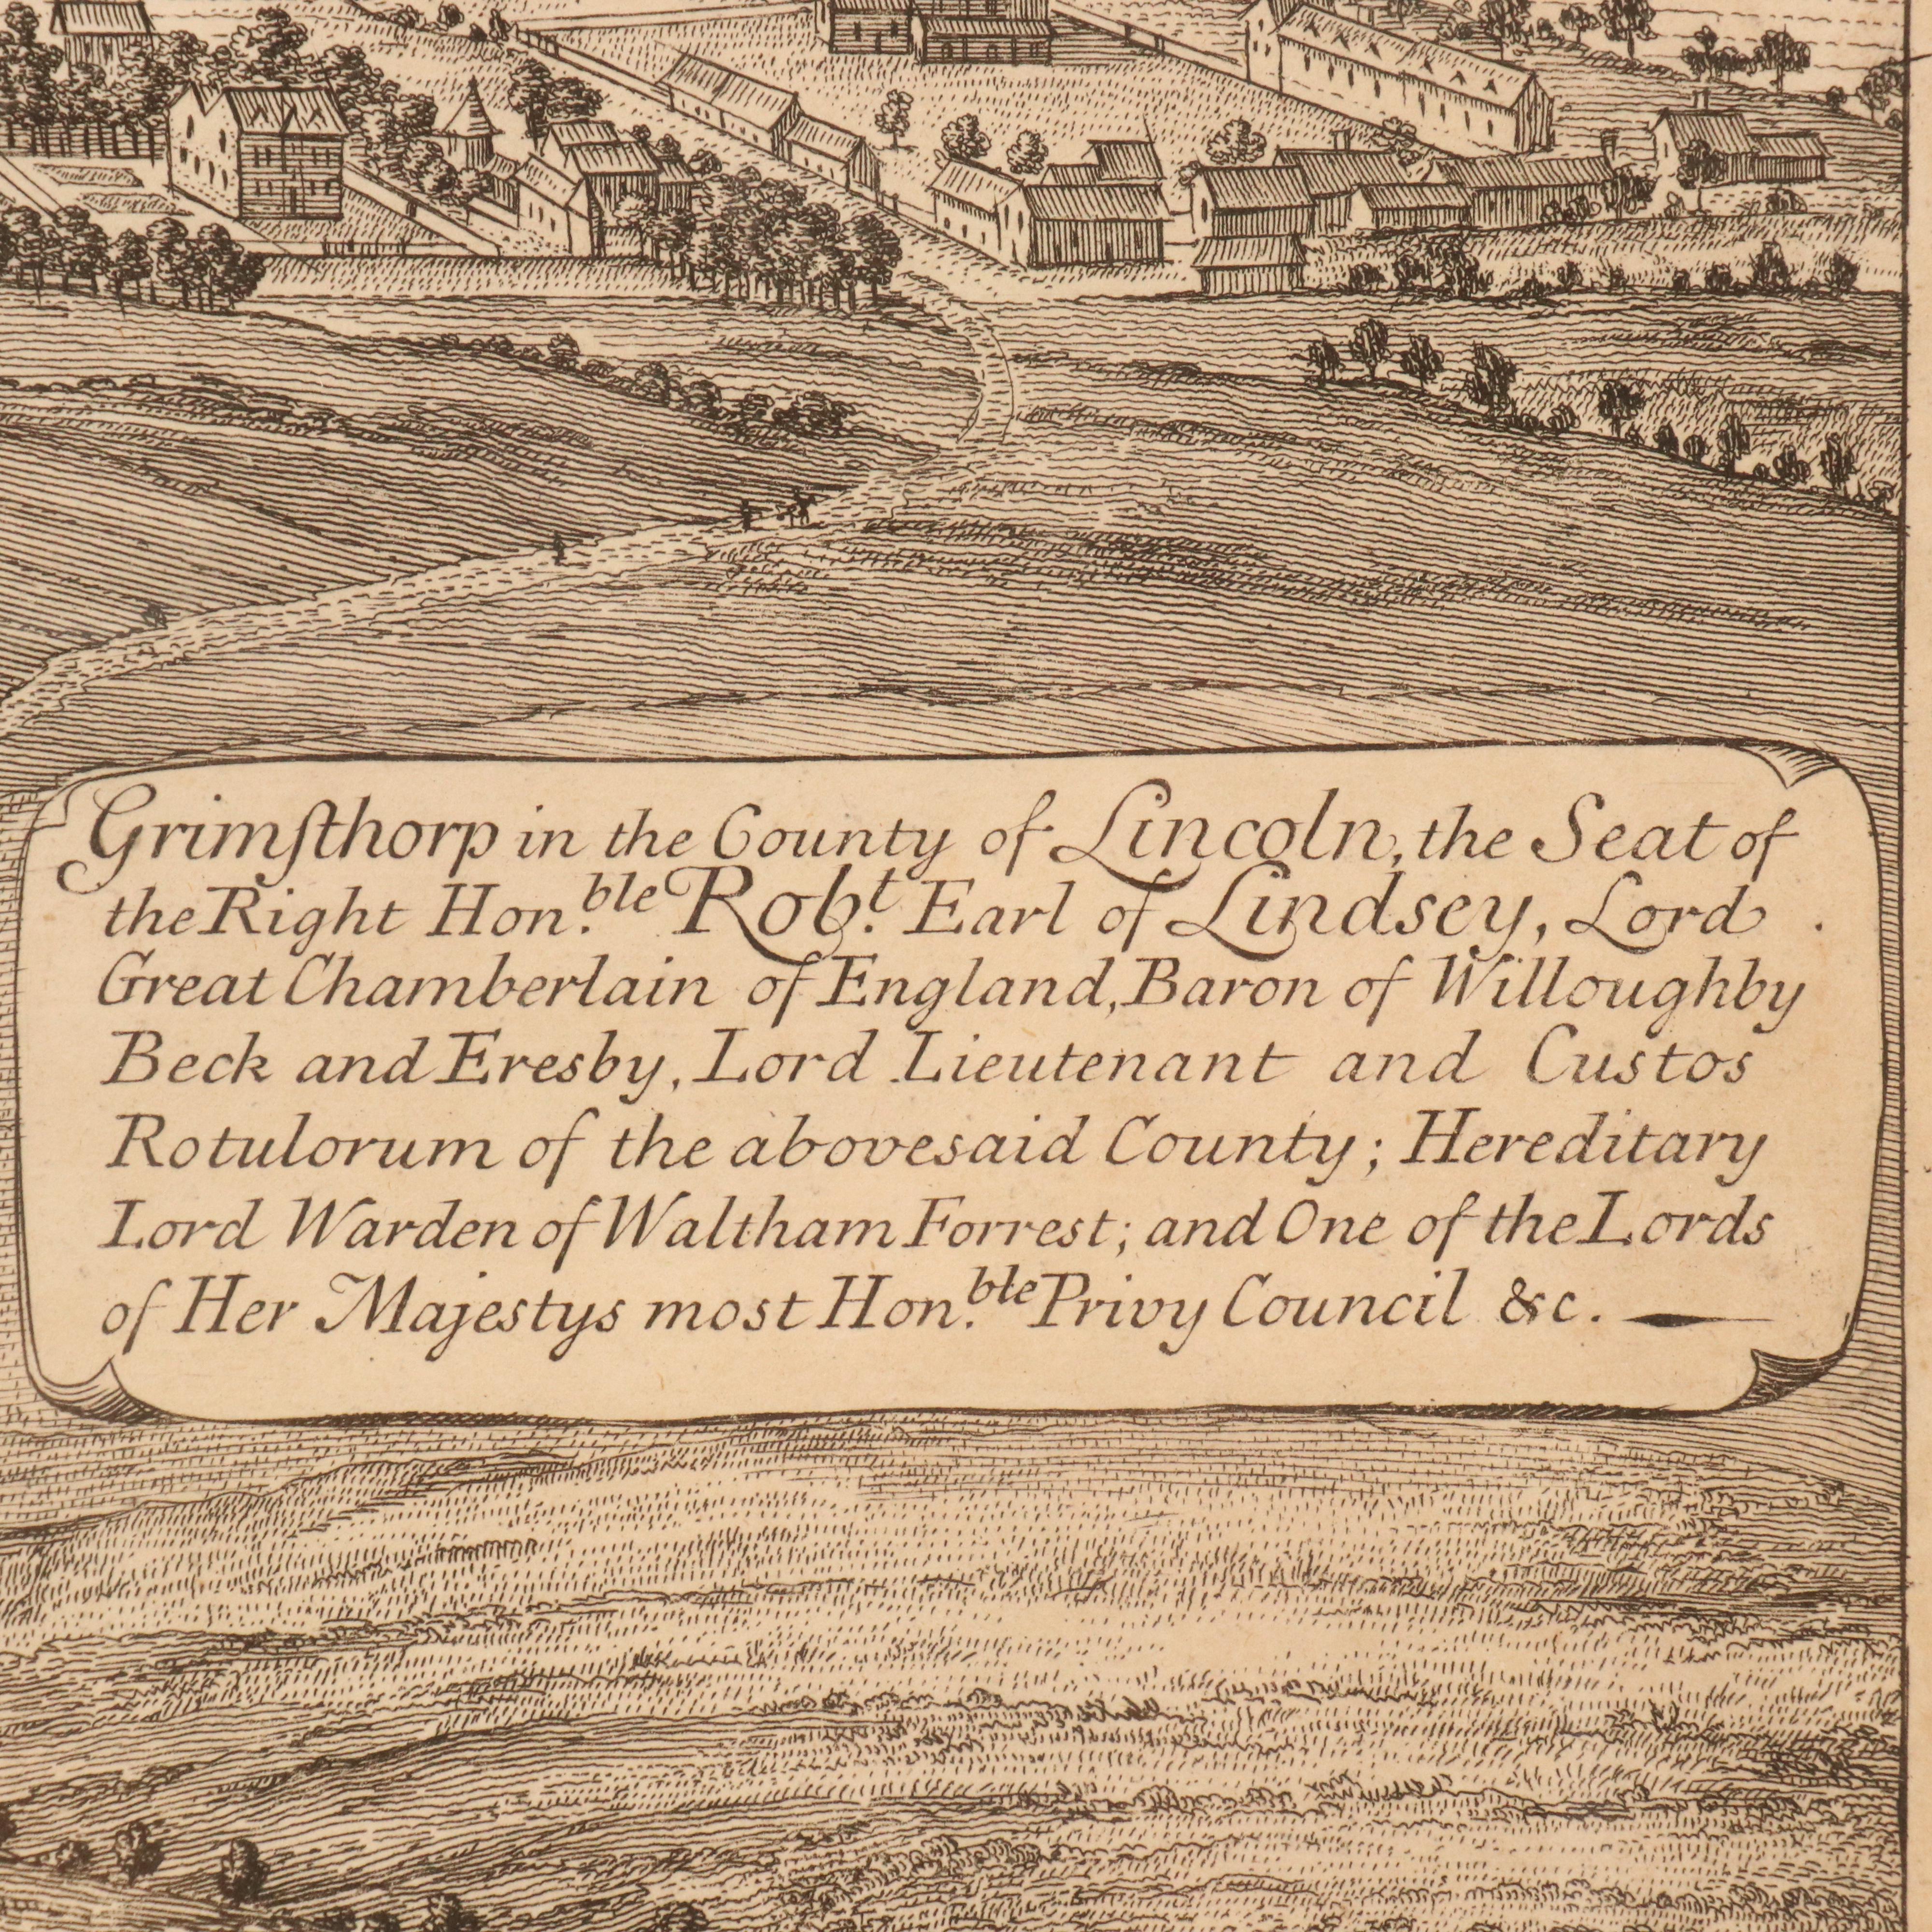 Grimſthorp in the County of Lincoln, the Seat of
the Right Hon.ble Rob.t Earl of Lindsey, Lord
Great Chamberlain of England, Baron of Willoughby
Beck and Eresby, Lord Lieutenant and Custos
Rotulorum of the abovesaid County; Hereditary
Lord Warden of Waltham Forrest; and One of the Lords
of Her Majestys most Hon.ble Privy Council &c.